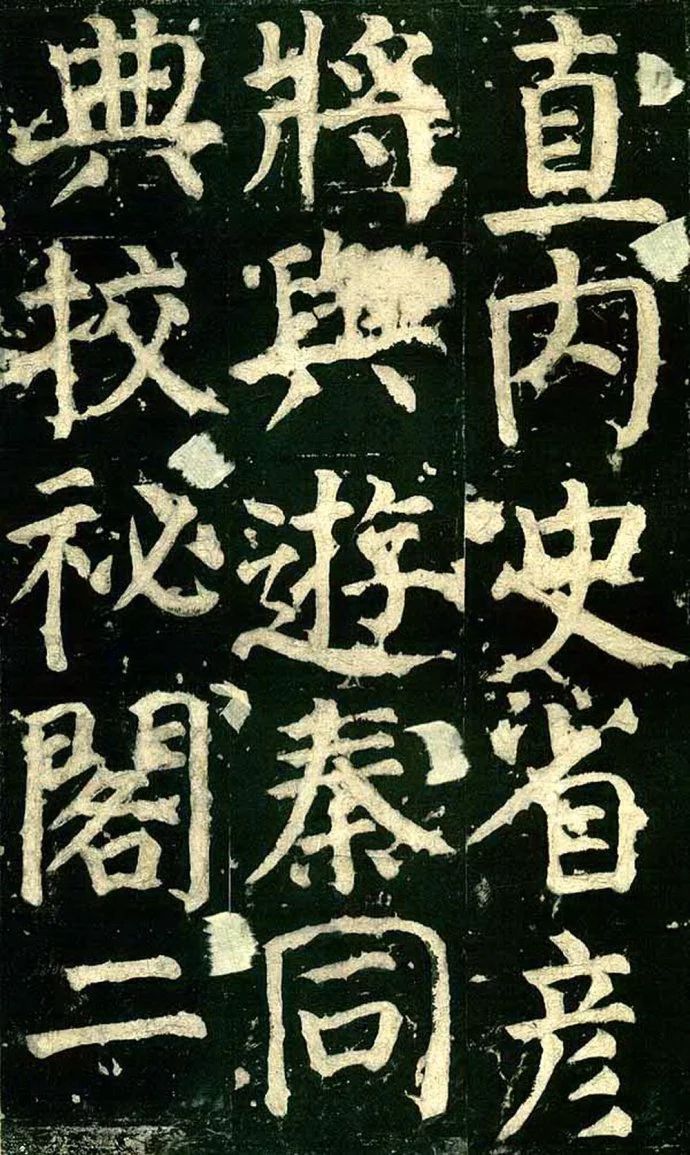 直内史省彦
將與遊秦同
典校祕閣二